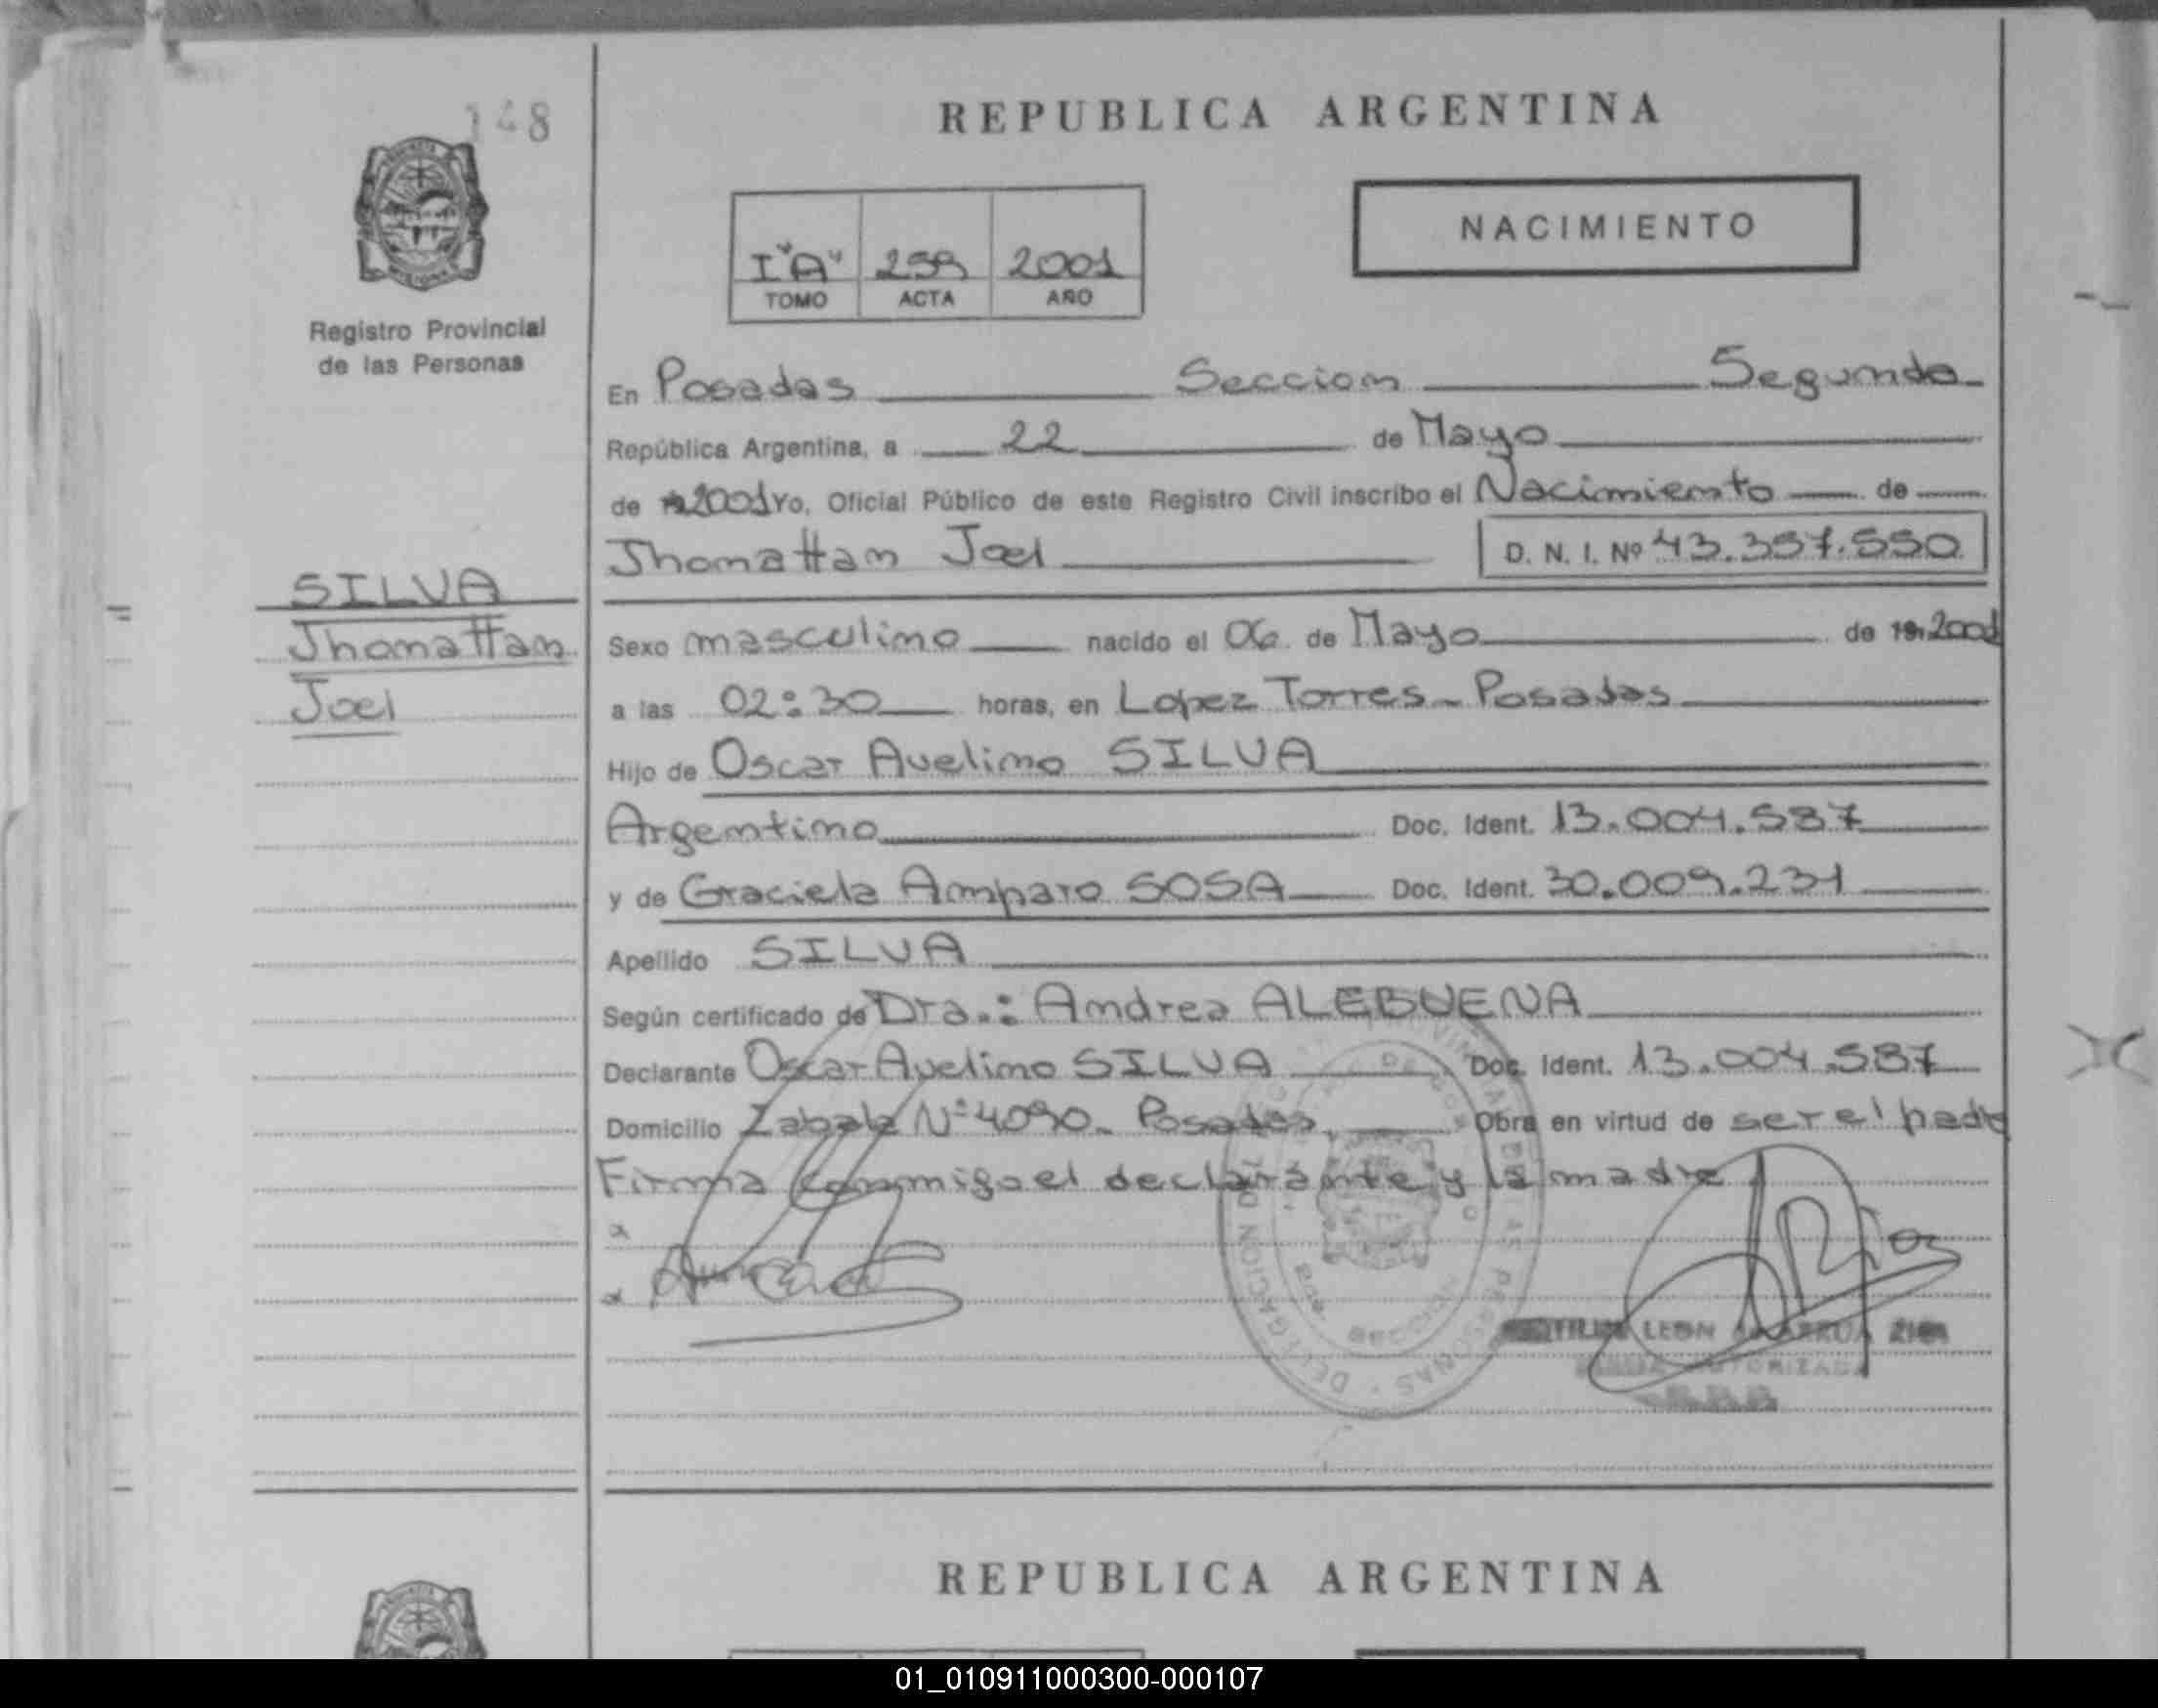 148
REPUBLICA ARGENTINA
NACIMIENTO
I "A" 259 2001
TOMO ACTA AÑO
Registro Provincial
de las Personas
En Posadas Seccion Segunda
República Argentina, a 22 de Mayo
de 2001 Yo, Oficial Público de este Registro Civil inscribo el Nacimiento de
Jhonattan Joel D. N. I. Nº 43.357.550
SILVA
Jhonattan
Joel
Sexo masculino nacido el 06 de Mayo de 19 2001
a las 02:30 horas, en Lopez Torres - Posadas
Hijo de Oscar Avelino SILVA
Argentino Doc. Ident. 13.004.587
y de Graciela Amparo SOSA Doc. Ident. 30.009.231
Apellido SILVA
Según certificado de Dra.: Andrea ALEBUENA
Declarante Oscar Avelino SILVA Doc. Ident. 13.004.587
Domicilio Zabala Nº 4090 - Posadas, Obra en virtud de ser el padre
Firma conmigo el declarante y la madre
LEON
REPUBLICA ARGENTINA
01_010911000300-000107